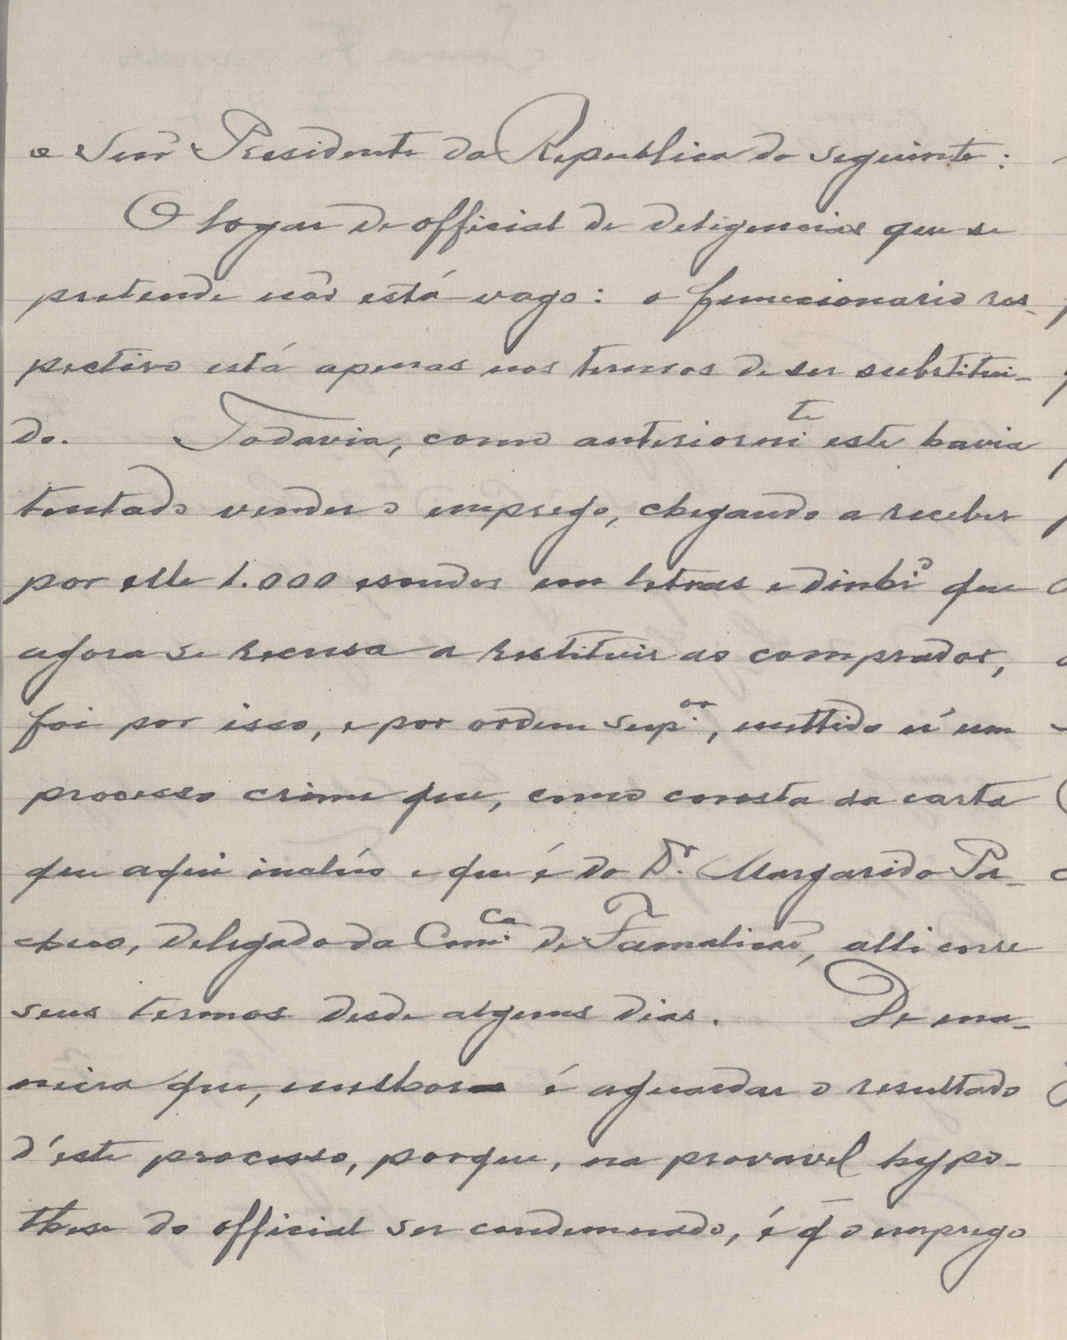 o Snr Presidente da Republica do seguinte:
O logar de official de deligencias que se
pretende não está vago: o funccionario res-
pectivo está apenas nos termos de ser substitui-
do. Todavia, como anteriormte este havia
tentado vender o emprego, chegando a receber
por elle 1.000 escudos em letras e dinhro que
agora se recusa a restituir ao comprador,
foi por isso, e por ordem supor, mettido n'um
processo crime que, como consta da carta
que aqui inclúo e que é do Dr. Margarido Pa-
checo, delegado da Comca de Famalicão, alli corre
seus termos desde alguns dias. De ma-
neira que, melhor é aguardar o resultado
d'este processo, porque, na provavel hypo-
these do official ser condemnado, é q̄ o emprego